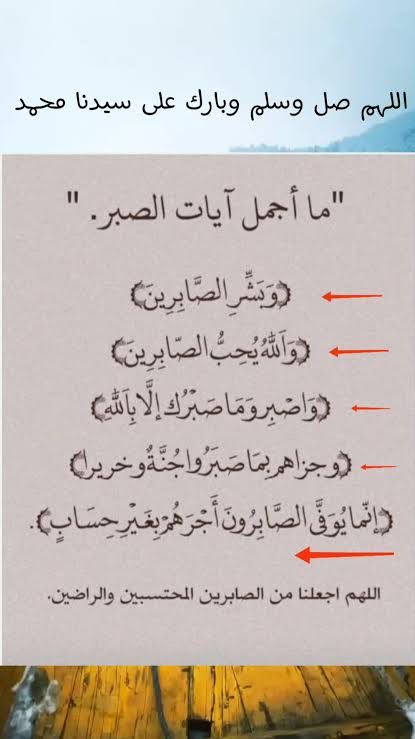 اللهم صل وسلم وبارك على سيدنا محمد
"ما أجمل آيات الصبر. "
﴿وَبَشِّرِ الصَّابِرِينَ﴾
﴿وَاللَّهُ يُحِبُّ الصَّابِرِينَ﴾
﴿وَاصْبِرْ وَمَا صَبْرُكَ إِلَّا بِاللَّهِ﴾
﴿وجزاهم بِمَا صَبَرُوا جُنَّةٌ وخريرا﴾
﴿إنّما يُوَفَّى الصَّابِرُونَ أَجْرَهُمْ بِغَيْرِ حِسَابٍ﴾.
اللهم اجعلنا من الصابرين المحتسبين والراضين.